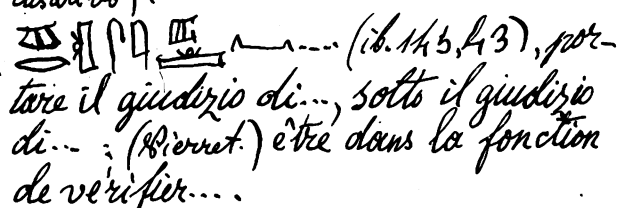 (ib. 145, 43), por-
tare il giudizio di..., sotto il giudizio
di... ; (Pierret.) être dans la fonction
de vérifier....